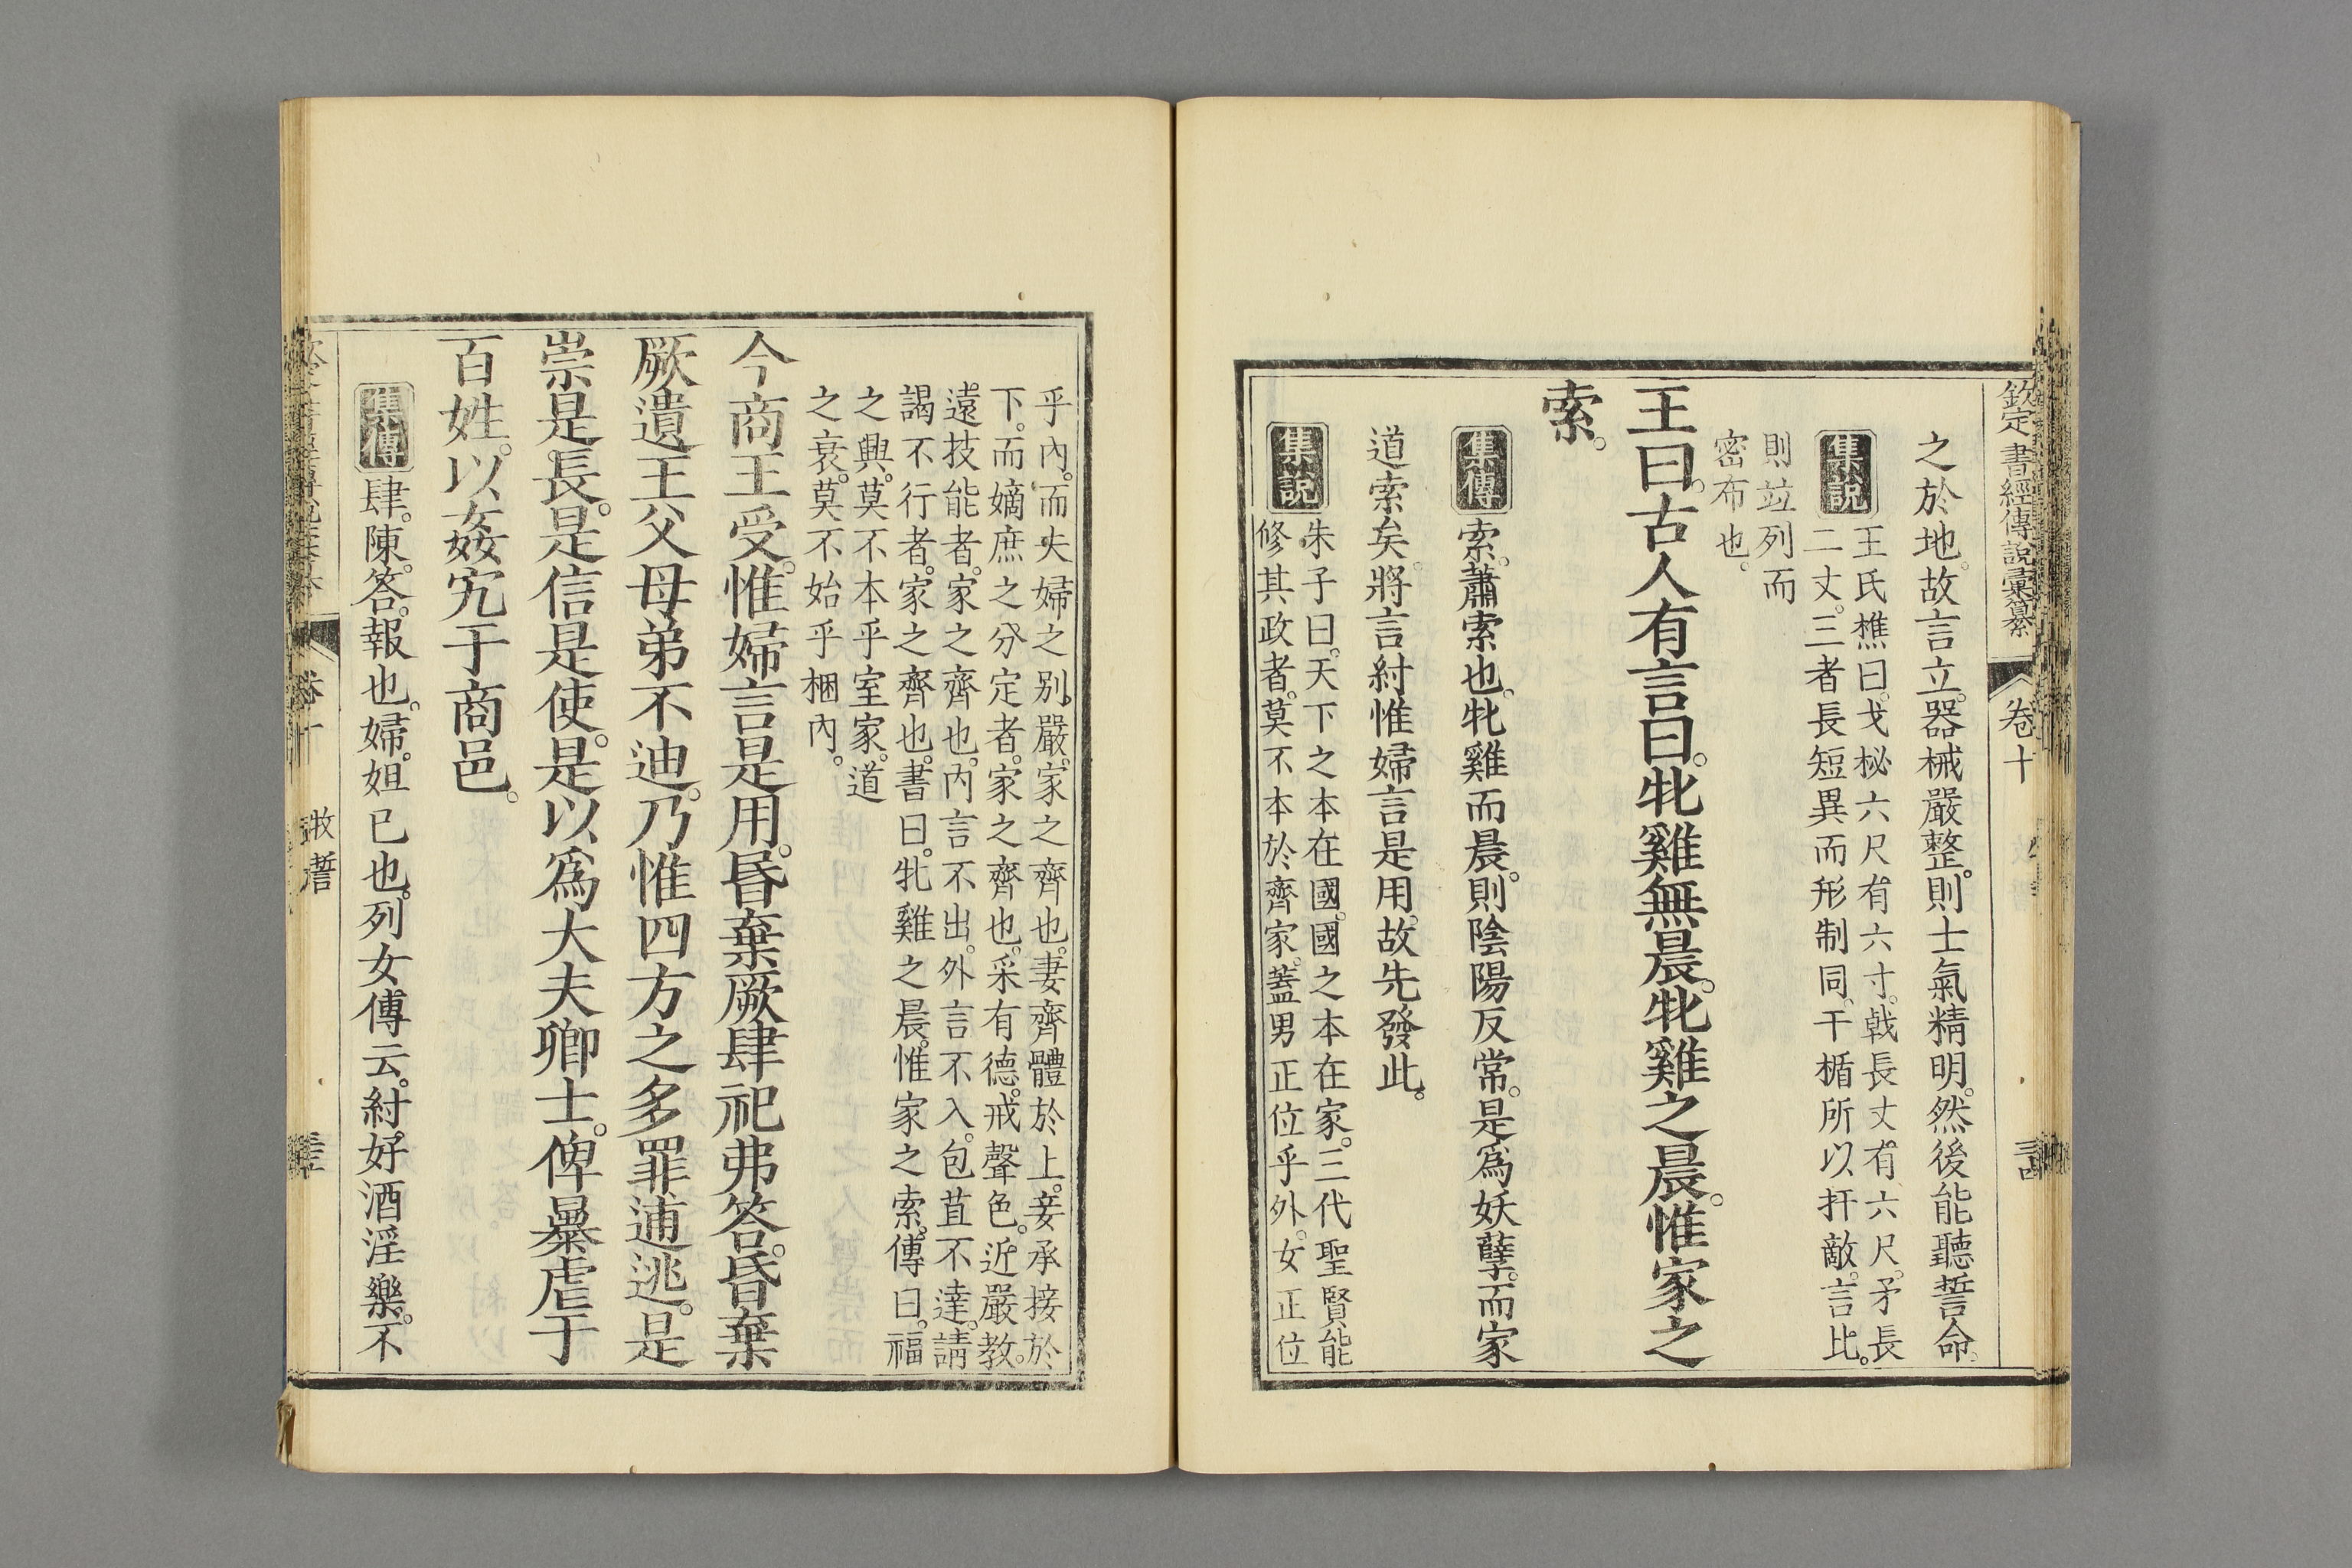 欽定書經傳說彙纂 卷十
之於地。故言立。器械嚴整。則士氣精明。然後能聽誓命。
集說
王氏樵曰。戈柲六尺有六寸。戟長丈有六尺。矛長
二丈。三者長短異而形制同。干楯所以扞敵。言比。
則竝列而
密布也。
王曰。古人有言曰。牝雞無晨。牝雞之晨。惟家之
索。
集傳 索。蕭索也。牝雞而晨。則陰陽反常。是爲妖孽。而家
道索矣。將言紂惟婦言是用。故先發此。
集說
朱子曰。天下之本在國。國之本在家。三代聖賢能
修其政者。莫不本於齊家。蓋男正位乎外。女正位
乎內。而夫婦之別。嚴。家之齊也。妻齊體於上。妾承接於
下。而嫡庶之分定者。家之齊也。采有德。戒聲色。近嚴教。
遠技能者。家之齊也。內言不出。外言不入。包苴不達。請
謁不行者。家之齊也。書曰。牝雞之晨。惟家之索。傳曰。福
之興。莫不本乎室家。道
之衰。莫不始乎梱內。
今商王受。惟婦言是用。昏棄厥肆祀弗答。昏棄
厥遺王父母弟不迪。乃惟四方之多罪逋逃。是
崇是長。是信是使。是以爲大夫卿士。俾暴虐于
百姓。以姦宄于商邑。
集傳 肆。陳。答。報也。婦。妲己也。列女傳云。紂。好酒淫樂。不
卷十 牧誓